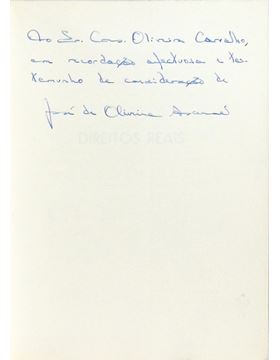 Ao Sr. Cons. Oliveira Carvalho,
em recordação afectuosa e tes-
temunho de consideração de
José de Oliveira Ascensão
DIREITOS REAIS